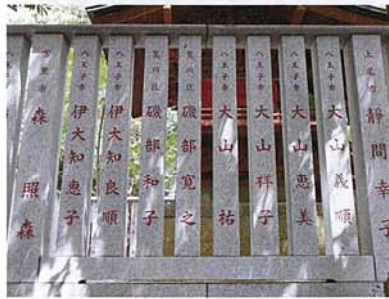 上尾市 靜間幸子
八王子市 大山義順
八王子市 大山惠美
八王子市 大山祥子
八王子市 大山祐
荒川区 磯部寛之
荒川区 磯部和子
八王子市 伊大知良順
八王子市 伊大知惠子
森照森